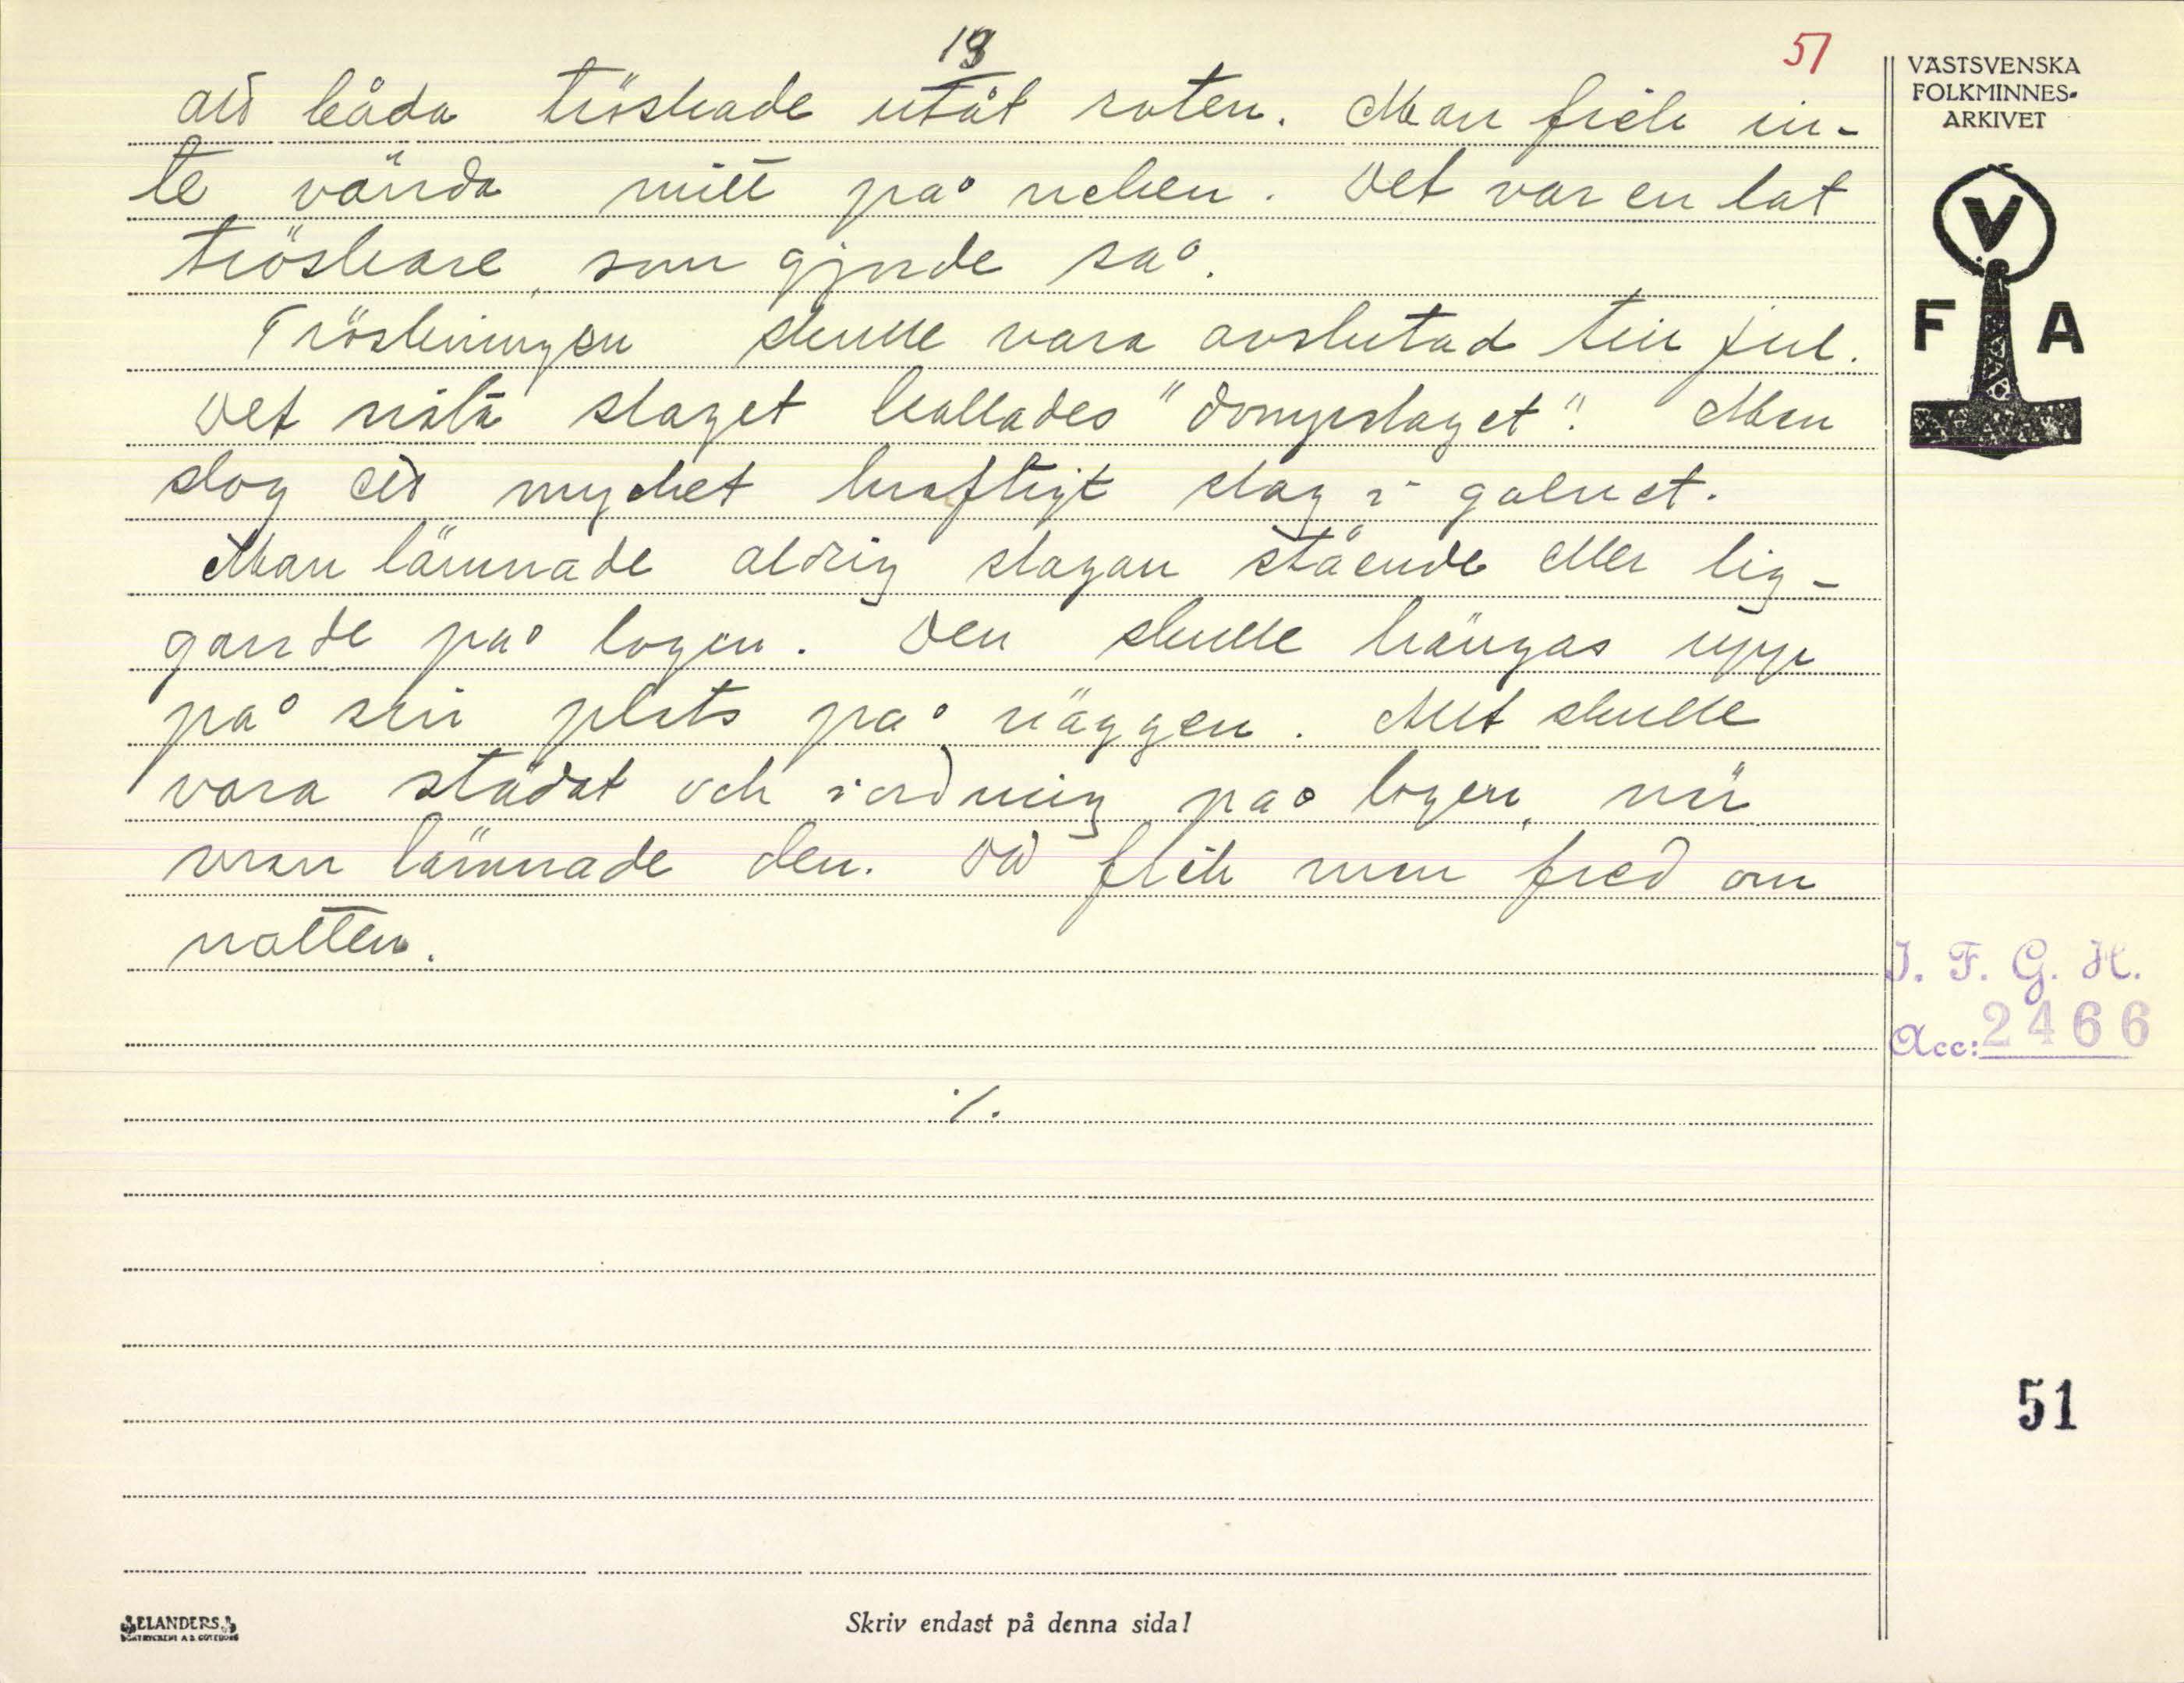 19
51
att båda tröskade utåt roten. Man fick in-
te vända mitt på neken. Det var en lat
tröskare, som gjorde så.
Tröskningen skulle vara avslutad till jul.
Det sista slaget kallades "dompslaget". Man
slog ett mycket kraftigt slag i golvet.
Man lämnade aldrig slagan stående eller lig-
gande på logen. Den skulle hängas upp
på sin plats på väggen. Allt skulle
vara städat och i ordning på logen, när
man lämnade den. Då fick man fred om
natten.
./.
VÄSTSVENSKA
FOLKMINNES-
ARKIVET
V
F A
I. F. G. H.
Acc: 2466
51
ELANDERS
BOKTRYCKERI A.B. GÖTEBORG
Skriv endast på denna sida!